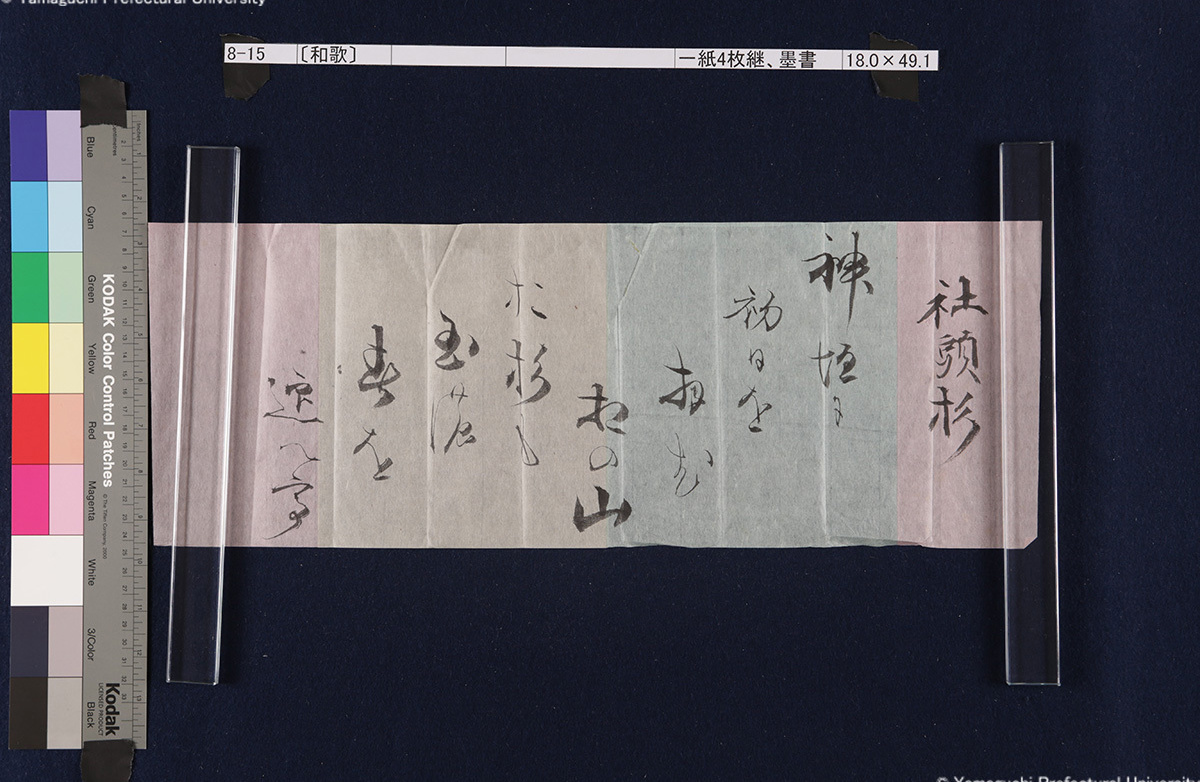 © Yamaguchi Prefectural University
8-15 〔和歌〕 一紙4枚継、墨書 18.0×49.1
社頭杉
神垣に
初日を
相の山
お杉も
玉
春を
迎
Blue
Cyan
Green
Yellow
Red
Magenta
White
3/Color
Black
KODAK Color Control Patches
© The Tiffen Company, 2000
Kodak
LICENSED PRODUCT
© Yamaguchi Prefectural University